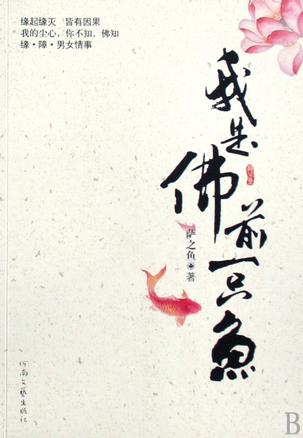 缘起缘灭 皆有因果
我的尘心，你不知，佛知
缘·障·男女情事
我是佛前一只鱼
萨之鱼 著
河南文艺出版社
B